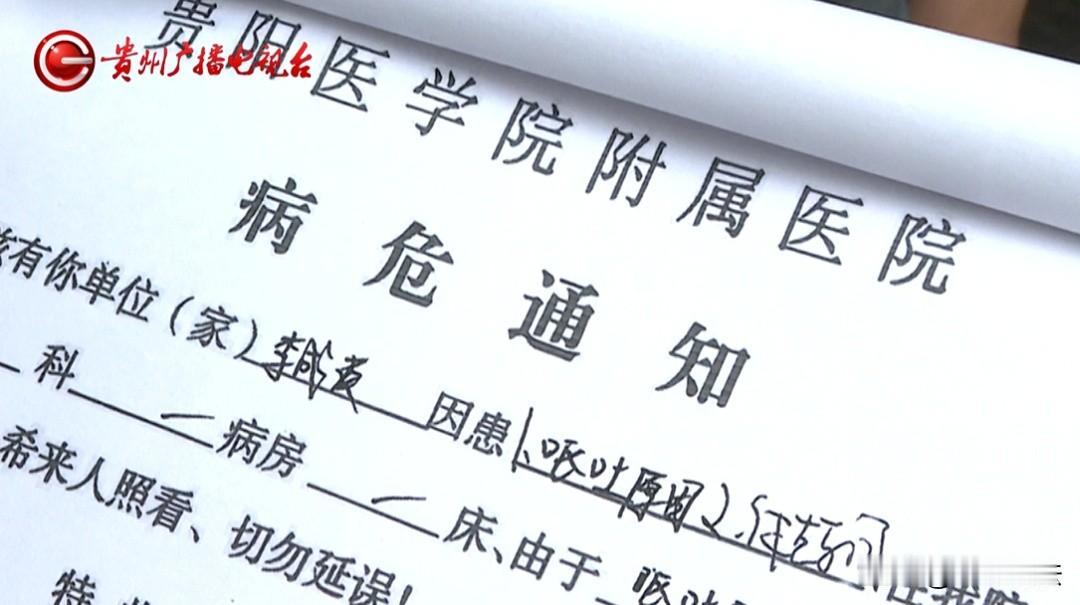 贵州广播电视台
贵阳医学院附属医院
病危通知
兹有你单位（家）李 因患1.呕吐原因2.
科 一 病房 一 床、由于 呕吐
希来人照看、切勿延误!
特